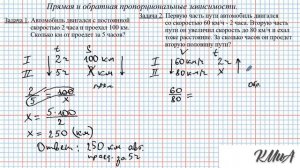 Прямая и обратная пропорциональные зависимости.
Задача 1. Автомобиль двигался с постоянной
скоростью 2 часа и проехал 100 км.
Сколько км от проедет за 5 часов?
t S
I ↓ 2 ч ↓ 100 км
II ↓ 5 ч ↓ X км
прям.
2/5 = 100/x
x = 5·100/2
x = 250 (км)
Ответ: 250 км авт.
проед. за 5 ч
Задача 2. Первую часть пути автомобиль двигался
со скоростью 60 км/ч - 2 часа. Вторую часть
пути он увеличил скорость до 80 км/ч и ехал
тоже расстояние. За сколько часов он проедет
вторую половину пути?
V t
I ↓ 60 км/ч 2 ч ↑
II ↓ 80 км/ч x ч
обр.
60/80 =
КМиА